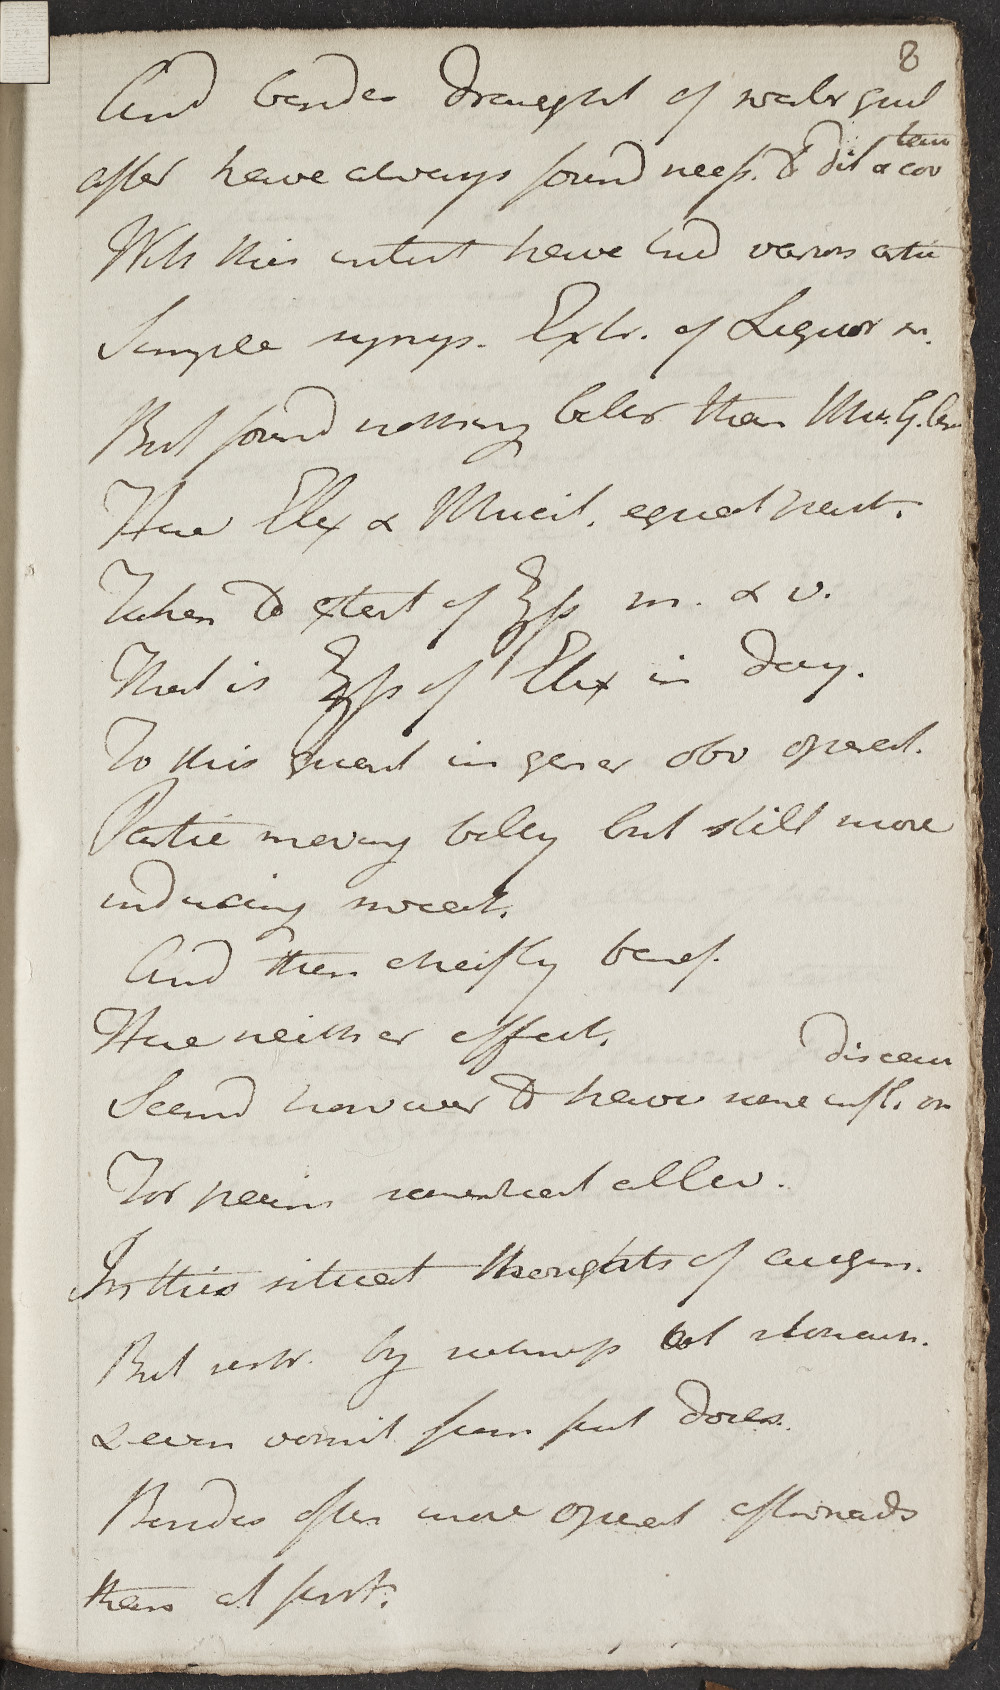 8
And besides draught of water guil
after have always found necess. to dil & cov
tem
With this intent have tried various artic
Simple syrup. Extr. of Liquor
But found nothing better than Muc. G. Ar
Here Elix & Mucil. equal part.
Taken to extent of ℥ss m. & v.
That is ℥ss of Elix in day.
To this quant in gener obv operat.
Partic moving belly but still more
inducing sweat.
And then cheifly benef.
Here neither effect.
Seemd however to have some infl. on
discern
For pain somewhat allev.
In this situat thoughts of augm.
But restr. by sickness at stomach.
& even vomit from first doses.
Besides often more operat afterwards
than at first.